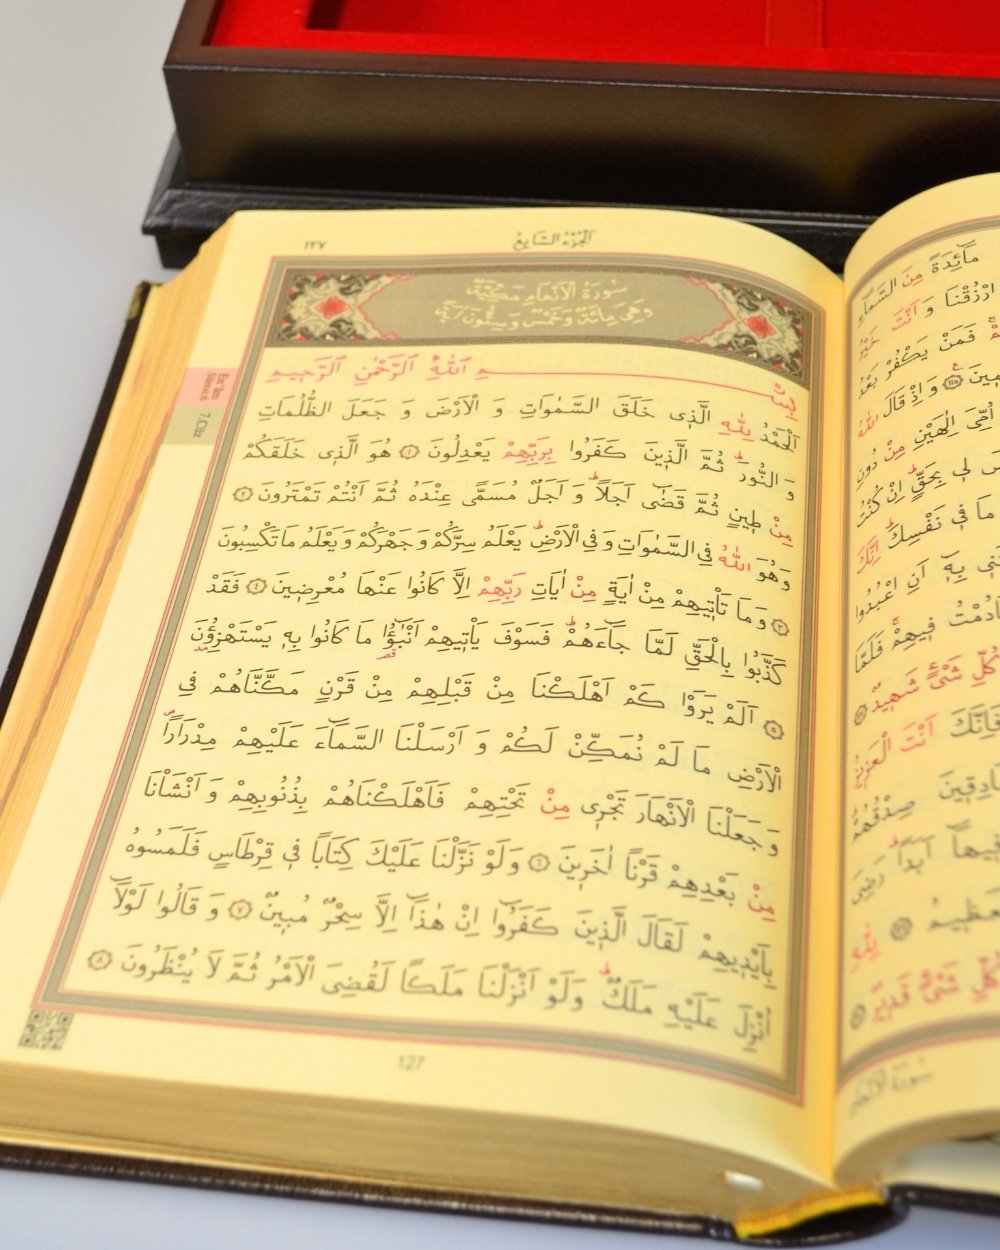 الجزء السابع
١٢٧
سُورَةُ الْاَنْعَامِ مَكِّيَّةٌ
وَهِىَ مِائَةٌ وَخَمْسٌ وَسِتُّونَ اٰيَةً
بِسْــــــمِ اللّٰهِ الرَّحْمٰنِ الرَّحٖيمِ
اَلْحَمْدُ لِلّٰهِ الَّذٖى خَلَقَ السَّمٰوَاتِ وَ الْاَرْضَ وَ جَعَلَ الظُّلُمَاتِ
وَ النُّورَؕ ثُمَّ الَّذٖينَ كَفَرُوا بِرَبِّهِمْ يَعْدِلُونَ ۝١ هُوَ الَّذٖى خَلَقَكُمْ
مِنْ طٖينٍ ثُمَّ قَضٰٓى اَجَلًاؕ وَ اَجَلٌ مُسَمًّى عِنْدَهُ ثُمَّ اَنْتُمْ تَمْتَرُونَ ۝٢
وَهُوَ اللّٰهُ فِى السَّمٰوَاتِ وَ فِى الْاَرْضِؕ يَعْلَمُ سِرَّكُمْ وَ جَهْرَكُمْ وَ يَعْلَمُ مَا تَكْسِبُونَ
۝٣ وَ مَا تَاْتٖيهِمْ مِنْ اٰيَةٍ مِنْ اٰيَاتِ رَبِّهِمْ اِلَّا كَانُوا عَنْهَا مُعْرِضٖينَ ۝٤ فَقَدْ
كَذَّبُوا بِالْحَقِّ لَمَّا جَٓاءَهُمْؕ فَسَوْفَ يَاْتٖيهِمْ اَنْبٰٓؤُا مَا كَانُوا بِهٖ يَسْتَهْزِؤُنَ
۝٥ اَلَمْ يَرَوْا كَمْ اَهْلَكْنَا مِنْ قَبْلِهِمْ مِنْ قَرْنٍ مَكَّنَّاهُمْ فِى
الْاَرْضِ مَا لَمْ نُمَكِّنْ لَكُمْ وَ اَرْسَلْنَا السَّمَٓاءَ عَلَيْهِمْ مِدْرَارًا
وَ جَعَلْنَا الْاَنْهَارَ تَجْرٖى مِنْ تَحْتِهِمْ فَاَهْلَكْنَاهُمْ بِذُنُوبِهِمْ وَ اَنْشَاْنَا
مِنْ بَعْدِهِمْ قَرْنًا اٰخَرٖينَ ۝٦ وَلَوْ نَزَّلْنَا عَلَيْكَ كِتَابًا فٖى قِرْطَاسٍ فَلَمَسُوهُ
بِاَيْدٖيهِمْ لَقَالَ الَّذٖينَ كَفَرُٓوا اِنْ هٰذَٓا اِلَّا سِحْرٌ مُبٖينٌ ۝٧ وَ قَالُوا لَوْلَٓا
اُنْزِلَ عَلَيْهِ مَلَكٌؕ وَلَوْ اَنْزَلْنَا مَلَكًا لَقُضِىَ الْاَمْرُ ثُمَّ لَا يُنْظَرُونَ ۝٨
En'âm
Sûresi
7.Cüz
127
مَٓائِدَةً مِنَ السَّمَٓاءِ
ارْزُقْنَا وَ اَنْتَ خَيْرُ
فَمَنْ يَكْفُرْ بَعْدُ
۝١١٥ وَ اِذْ قَالَ اللّٰهُ
اُمِّىَ اِلٰهَيْنِ مِنْ دُونِ
لٖى بِحَقٍّؕ اِنْ كُنْتُ
مَا فٖى نَفْسِكَؕ اِنَّكَ
بِهٖٓ اَنِ اعْبُدُوا
دُمْتُ فٖيهِمْۚ فَلَمَّا
كُلِّ شَىْءٍ شَهٖيدٌ
فَاِنَّكَ اَنْتَ الْعَزٖيزُ
صِدْقُهُمْؕ
فٖيهَٓا اَبَدًاؕ رَضِىَ
لِلّٰهِ
كُلِّ شَىْءٍ قَدٖيرٌ
سُورَةُ الْاَنْعَامِ